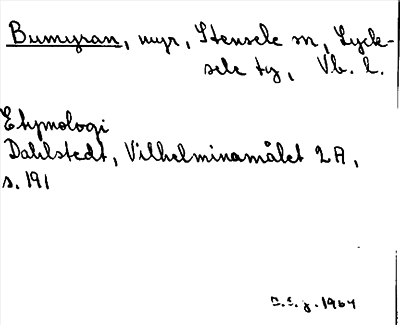 Bumyran, myr, Stensele sn, Lyck-
sele tg, Vb. l.
Etymologi
Dahlstedt, Vilhelminamålet 2A,
s. 191
1964